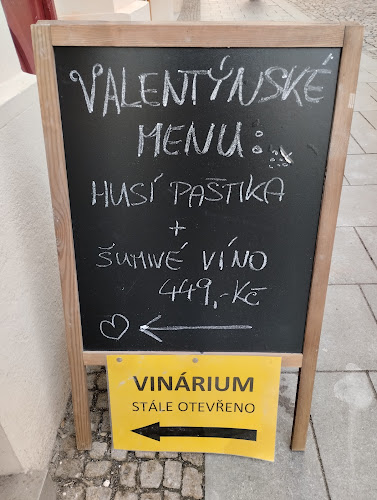 VALENTÝNSKÉ
MENU:
HUSÍ PAŠTIKA
+
ŠUMIVÉ VÍNO
449,-Kč
VINÁRIUM
STÁLE OTEVŘENO